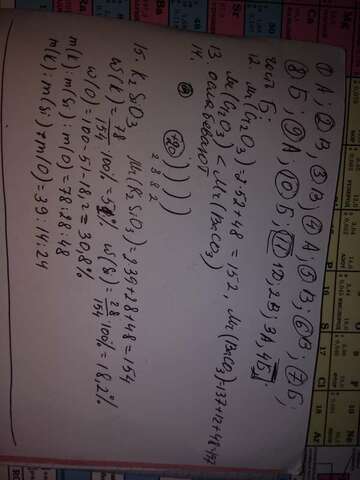 ① А; ② В, ③ В; ④ А; ⑤ В; ⑥ В; ⑦ Б;
⑧ Б; ⑨ А; ⑩ Б; 11 1D, 2В; 3А, 4Б
Часть Б.
12. Mr(Cr₂O₃) = 52 + 48 = 152, Mr(BaCO₃) = 137 + 12 + 48 = 197
Mr(Cr₂O₃) < Mr(BaCO₃)
13
14.
+20 ) ) ) )
2 8 8 2
15. K₂SiO₃ Mr(K₂SiO₃) = 2·39 + 28 + 48 = 154
W(K) = 78/154 · 100% = 51% W(Si) = 28/154 · 100% = 18,2%
W(O) = 100 - 51 - 18,2 = 30,8%
m(K) : m(Si) : m(O) = 78 : 28 : 48
m(K) : m(Si) : m(O) = 39 : 14 : 24